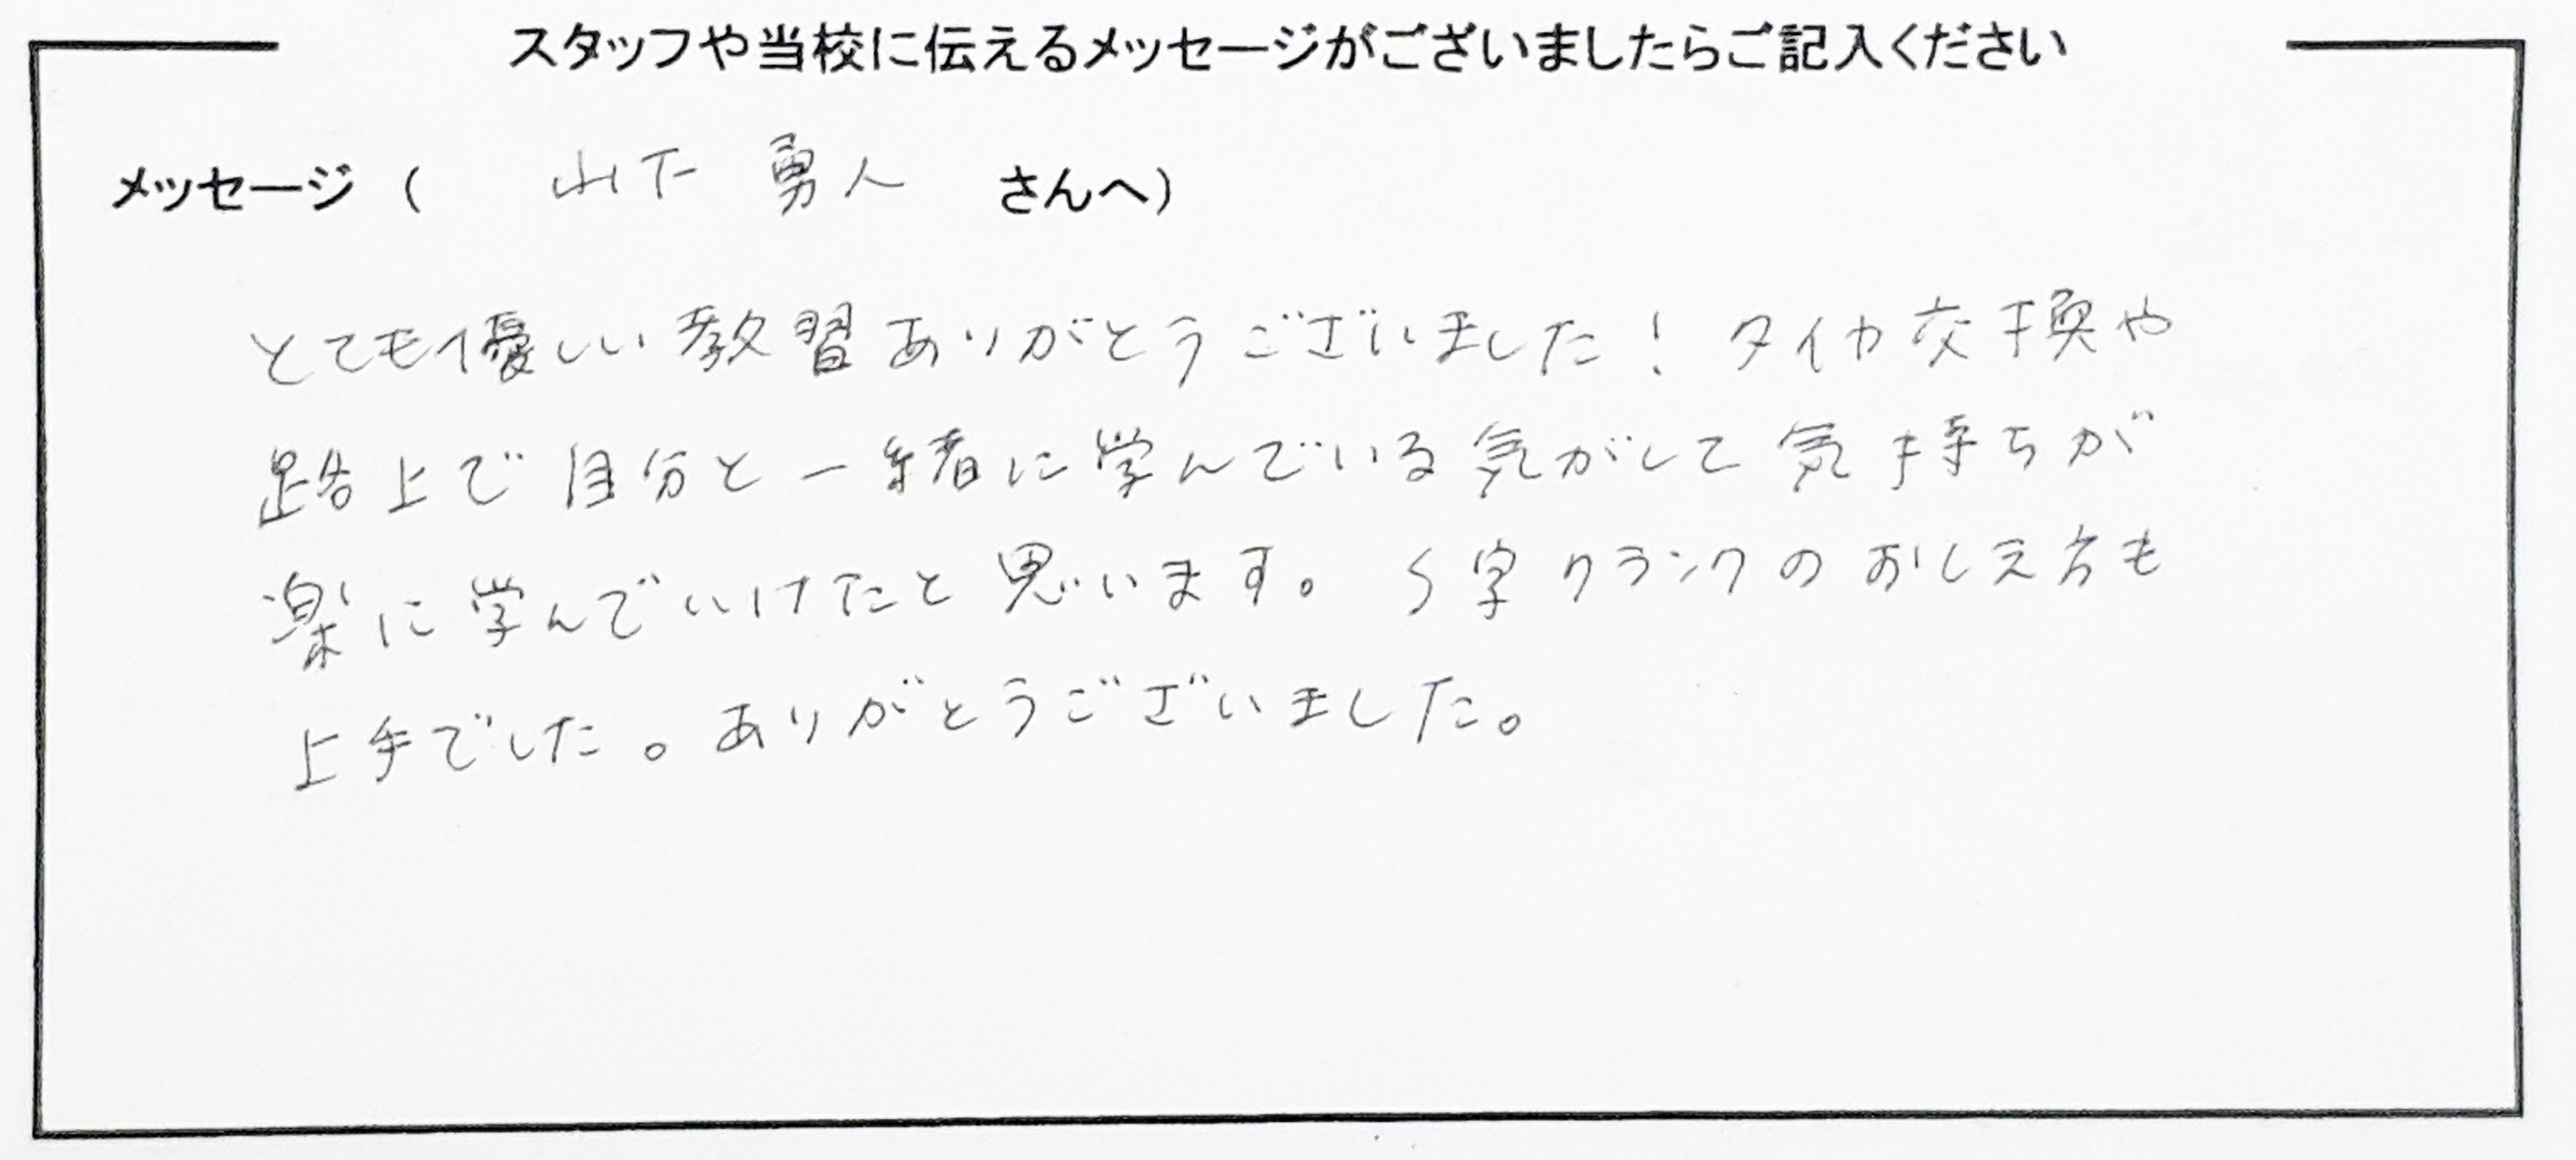 スタッフや当校に伝えるメッセージがございましたらご記入ください
メッセージ ( 山下 勇人 さんへ)
とても優しい教習ありがとうございました！タイヤ交換や
路上で自分と一緒に学んでいる気がして気持ちが
楽に学んでいけたと思います。S字クランクのおしえ方も
上手でした。ありがとうございました。